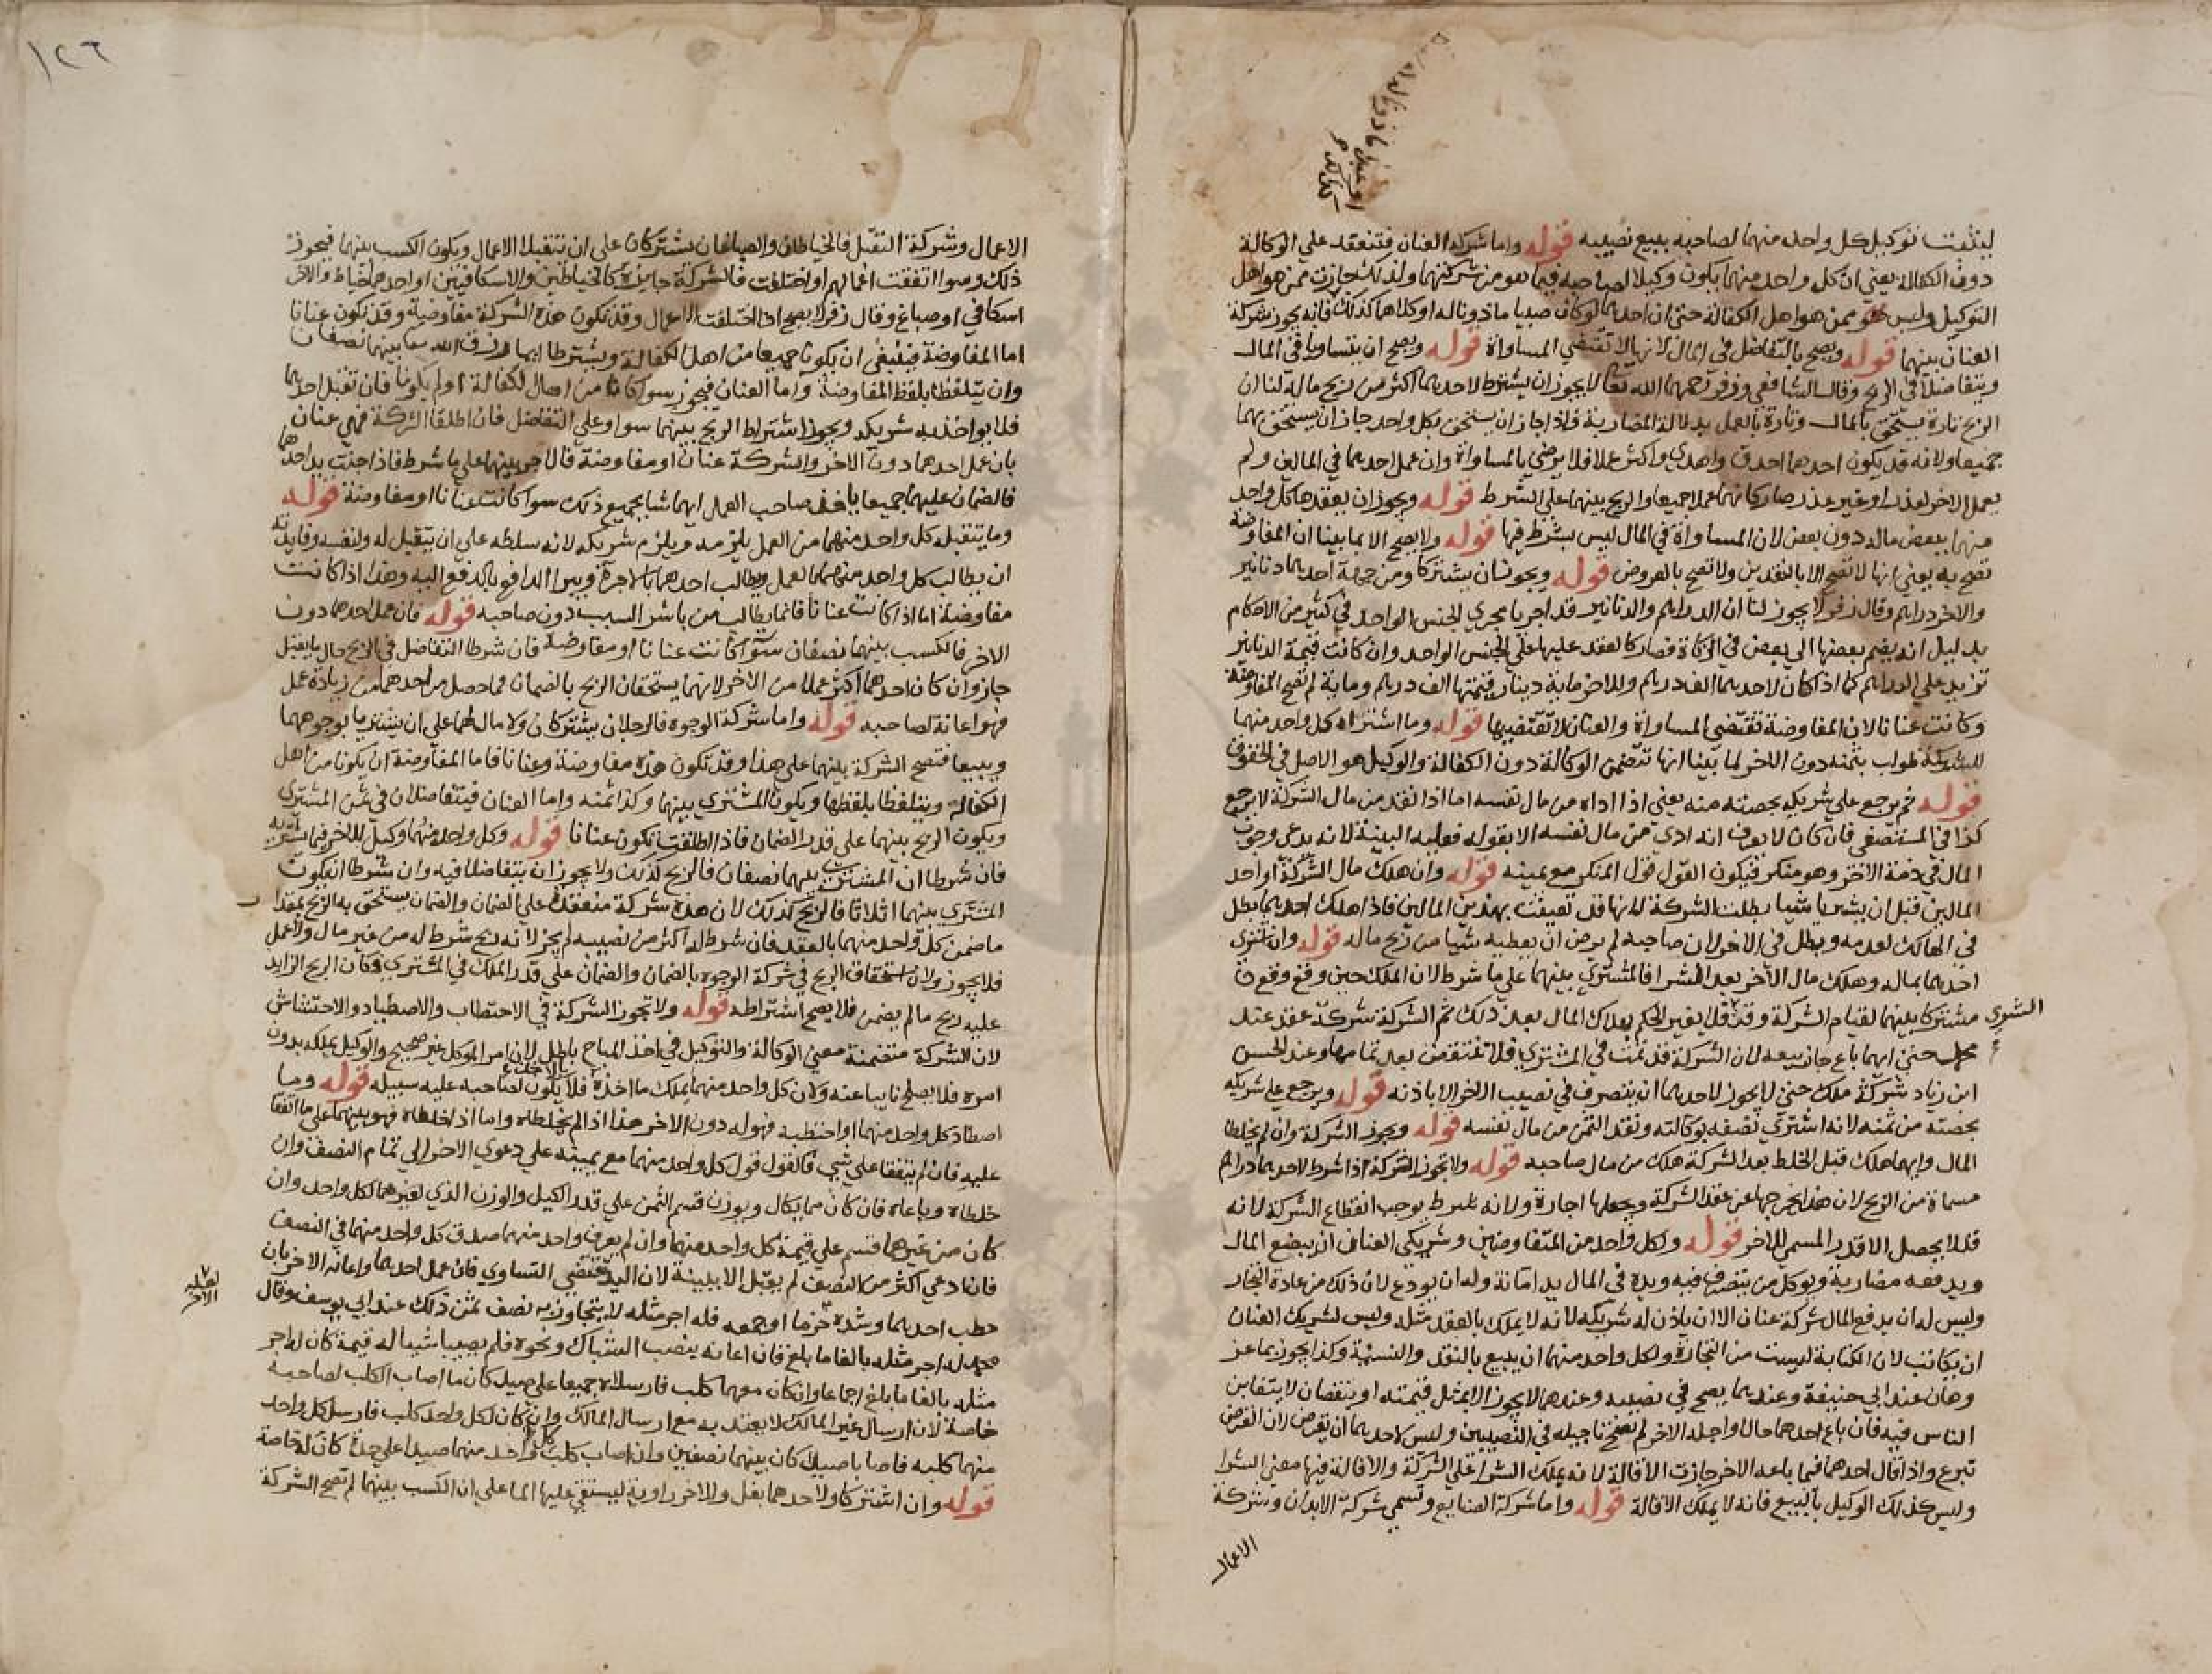 ليثبت توكيل كل واحد منهما لصاحبه ببيع نصيبه قوله واما شركة العنان فتنعقد علي الوكالة
دون الكفالة يعني ان كل واحد منهما يكون وكيلا لصاحبه فيما هو من شركتهما ولذلك جازت ممن هو اهل
التوكيل وليس هو ممن هو اهل الكفالة حتي ان احدهما لو كان صبيا ماذونا له او كلاهما كذلك فانه يجوز شركة
العنان بينهما قوله ويصح بالتفاضل في المال لانها لا تقتضي المساواة قوله ويصح ان يتساويا في المال
ويتفاضلا في الربح وقال الشافعي وزفر رحمهما الله تعا لا يجوز ان يشترط لاحدهما اكثر من ربح ماله لنا ان
الربح تارة يستحق بالمال وتارة بالعمل بدلالة المضاربة فاذا جاز ان يستحق بكل واحد جاز ان يستحق بهما
جميعا ولانه قد يكون احدهما احذق واهدي واكثر عملا فلا يرضي بالمساواة وان عمل احدهما في المالين ولم
يعمل الاخر لعذر او غير عذر صار كانهما عملا جميعا والربح بينهما علي الشرط قوله ويجوز ان يعقدها كل واحد
منهما ببعض ماله دون بعض لان المساواة في المال ليس بشرط فيها قوله ولا يصح الا بما بينا ان المفاوضة
تصح به يعني انها لا تصح الا بالنقدين ولا تصح بالعروض قوله ويجوز ان يشتركا ومن جهة احدهما دنانير
والاخر دراهم وقال زفر لا يجوز لنا ان الدراهم والدنانير قد اجريا مجري الجنس الواحد في كثير من الاحكام
بدليل انه يضم بعضها الي بعض في الزكاة فصار كالعقد عليها علي الجنس الواحد وان كانت قيمة الدنانير
تزيد علي الدراهم كما اذا كان لاحدهما الف درهم وللاخر ماية دينار قيمتها الف درهم وماية لم تصح المفاوضة
وكانت عنانا لان المفاوضة تقتضي المساواة والعنان لا تقتضيها قوله وما اشتراه كل واحد منهما
للشركة طولب بثمنه دون الاخر لما بينا انها تتضمن الوكالة دون الكفالة والوكيل هو الاصل في الحقوق
قوله ثم يرجع علي شريكه بحصته منه يعني اذا اداه من مال نفسه اما اذا نقد من مال الشركة لا يرجع
كذا في المستصفي فان كان لا يعرف انه ادي من مال نفسه الا بقوله فعليه البينة لانه يدعي وجوب
المال في ذمة الاخر وهو منكر فيكون القول قول المنكر مع يمينه قوله وان هلك مال الشركة او احد
المالين قبل ان يشتريا شيا بطلت الشركة لانها قد تعينت بهذين المالين فاذا هلك احدهما بطل
في الهالك لعدمه وبطل في الاخر لان صاحبه لم يرض ان يعطيه شيا من ربح ماله قوله وان اشتري
احدهما بماله وهلك مال الاخر بعد الشرا فالمشتري بينهما علي ما شرط لان الملك حين وقع وقع
مشتركا بينهما لقيام الشركة وقت فلا يغير الحكم بهلاك المال بعد ذلك ثم الشركة شركة عقد عند
محمد حتي ايهما باع جاز بيعه لان الشركة قد تمت في المشتري فلا تنتقض بعد تمامها وعند الحسن
ابن زياد شركة ملك حتي لا يجوز لاحدهما ان يتصرف في نصيب الاخر الا باذنه قوله ويرجع علي شريكه
بحصته من ثمنه لانه اشتري نصفه بوكالته ونقد الثمن من مال نفسه قوله ويجوز الشركة وان لم يخلطا
المال وايهما هلك قبل الخلط بعد الشركة هلك من مال صاحبه قوله ولا تجوز الشركة اذا شرط لاحدهما دراهم
مسماة من الربح لان هذا يخرجها عن عقد الشركة ويجعلها اجارة ولانه شرط يوجب انقطاع الشركة لانه
قد لا يحصل الا قدر المسمي للاخر قوله ولكل واحد من المتفاوضين وشريكي العنان ان يبضع المال
ويدفعه مضاربة ويوكل من يتصرف فيه ويده في المال يد امانة وله ان يودع لان ذلك من عادة التجار
وليس له ان يدفع المال شركة عنان الا ان ياذن له شريكه لانه لا يملك بالعقد مثله وليس لشريك العنان
ان يكاتب لان الكتابة ليست من التجارة ولكل واحد منهما ان يبيع بالنقد والنسئة وكذا يجوز بما عز
وهان عند ابي حنيفة وعندهما يصح في نصيبه وعندهما لا يجوز الا بمثل قيمته او بنقصان لا يتغابن
الناس فيه فان باع احدهما حالا واجله الاخر لم يصح تاجيله في النصيبين وليس لاحدهما ان يقرض لان القرض
تبرع واذا اقال احدهما فيما باعه الاخر جازت الاقالة لانه يملك الشرا علي الشركة والاقالة فيها معني الشرا
وليس كذلك الوكيل بالبيع فانه لا يملك الاقالة قوله واما شركة الصنايع وتسمي شركة الابدان وشركة
الاعمال
الشري
١٢٦
الاعمال وشركة التقبل فالخياطان والصباغان يشتركان علي ان يتقبلا الاعمال ويكون الكسب بينهما فيجوز
ذلك وسوا اتفقت اعمالهم او اختلفت فالشركة جايزة كالخياطين والاسكافيين او احدهما خياط والاخر
اسكافي او صباغ وقال زفر لا يصح اذا اختلفت الاعمال وقد تكون هذه الشركة مفاوضة وقد تكون عنانا
اما المفاوضة فينبغي ان يكونا جميعا من اهل الكفالة ويشترطا ان ما رزق الله تعا بينهما نصفان
وان يتلفظا بلفظ المفاوضة واما العنان فيجوز سوا كانا من اهل الكفالة او لم يكونا فان تقبل احدهما
فلا يواخذ به شريكه ويجوز اشتراط الربح بينهما سوا وعلي التفاضل فان اطلقا الشركة فهي عنان
بان عمل احدهما دون الاخر والشركة عنان او مفاوضة فالاجر بينهما علي ما شرط فاذا جنت يد احدهما
فالضمان عليهما جميعا ياخذ صاحب العمل ايهما شا بجميع ذلك سوا كانت عنانا او مفاوضة قوله
وما يتقبله كل واحد منهما من العمل يلزمه ويلزم شريكه لانه سلطه علي ان يتقبل له ولنفسه وفايدته
ان يطالب كل واحد منهما بالعمل ويطالب احدهما بالاجرة ويبرا الدافع بالدفع اليه وهذا اذا كانت
مفاوضة اما اذا كانت عنانا فانما يطالب من باشر السبب دون صاحبه قوله فان عمل احدهما دون
الاخر فالكسب بينهما نصفان سوا كانت عنانا او مفاوضة فان شرطا التفاضل في الربح حال ما يقبل
جاز وان كان احدهما اكثر عملا من الاخر لانهما يستحقان الربح بالضمان فما حصل من احدهما من زيادة عمل
فهو اعانة لصاحبه قوله واما شركة الوجوه فالرجلان يشتركان ولا مال لهما علي ان يشتريا بوجوههما
ويبيعا فتصح الشركة بينهما علي هذا وقد تكون هذه مفاوضة وعنانا فاما المفاوضة ان يكونا من اهل
الكفالة ويتلفظا بلفظها ويكون المشتري بينهما وكذا ثمنه واما العنان فيتفاضلان في ثمن المشتري
ويكون الربح بينهما علي قدر الضمان فاذا اطلقت تكون عنانا قوله وكل واحد منهما وكيل للاخر فيما يشتريه
فان شرطا ان المشتري بينهما نصفان فالربح كذلك ولا يجوز ان يتفاضلا فيه وان شرطا ان يكون
المشتري بينهما اثلاثا فالربح كذلك لان هذه شركة منعقدة علي الضمان والضمان يستحق به الربح بمقدار
ما ضمن كل واحد منهما بالعقد فان شرط له اكثر من نصيبه لم يجز لانه ربح شرط له من غير مال ولا عمل
فلا يجوز ولان استحقاق الربح في شركة الوجوه بالضمان والضمان علي قدر الملك في المشتري فكان الربح الزايد
عليه ربح ما لم يضمن فلا يصح اشتراطه قوله ولا تجوز الشركة في الاحتطاب والاصطياد والاحتشاش
لان الشركة متضمنة معني الوكالة والتوكيل في اخذ المباح باطل لان امر الموكل غير صحيح والوكيل يملكه بدون
امره فلا يصلح نايبا عنه ولان كل واحد منهما يملك ما اخذه بالاخذ فلا يكون لصاحبه عليه سبيل قوله وما
اصطاد كل واحد منهما او احتطبه فهو له دون الاخر هذا اذا لم يخلطاه واما اذا خلطاه فهو بينهما علي ما اتفقا
عليه فان لم يتفقا علي شي فالقول قول كل واحد منهما مع يمينه علي دعوي الاخر الي تمام النصف وان
خلطاه وباعاه فان كان مما يكال ويوزن قسم الثمن علي قدر الكيل والوزن الذي لكل واحد وان
كان من غيرهما قسم علي قيمة كل واحد منهما وان لم يعرف واحد منهما صدق كل واحد منهما في النصف
فان ادعي اكثر من النصف لم يقبل الا ببينة لان اليد تقتضي التساوي فان عمل احدهما واعانه الاخر بان
حطب احدهما وشده حزما او جمعه فله اجر مثله لا يتجاوز به نصف ثمن ذلك عند ابي يوسف وقال
محمد له اجر مثله بالغا ما بلغ فان اعانه بنصب الشباك ونحوه فلم يصيبا شيا له قيمة كان له اجر
مثله بالغا ما بلغ اجماعا وان كان معهما كلب فارسلاه جميعا علي صيد كان ما اصاب الكلب لصاحبه
خاصة لان ارسال غير المالك لا يعتد به مع ارسال المالك وان كان لكل واحد كلب فارسل كل واحد
منهما كلبه فاصابا صيدا كان بينهما نصفين وان اصاب كلب كل واحد منهما صيدا علي حدة كان له خاصة
قوله وان اشتركا ولاحدهما بغل وللاخر راوية ليستقي عليها الما علي ان الكسب بينهما لم تصح الشركة